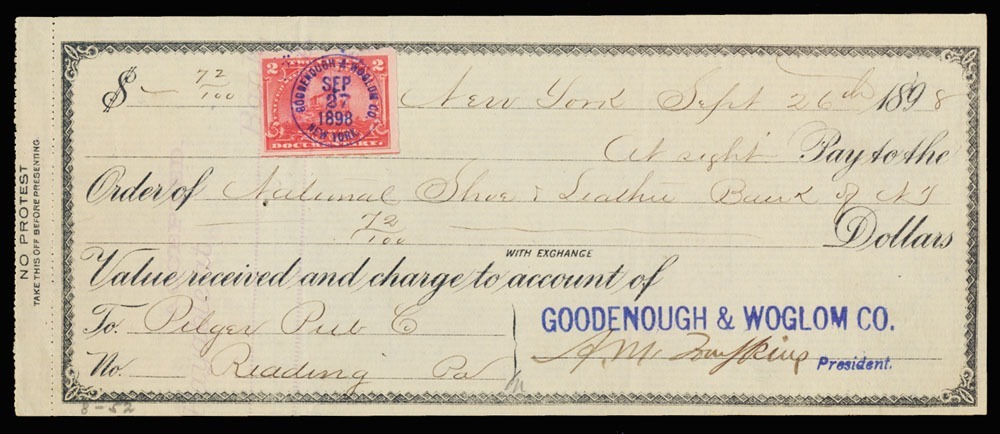 NO PROTEST
TAKE THIS OFF BEFORE PRESENTING
$ 72/100 New York Sept 26th 1898
2 2
GOODENOUGH & WOGLOM CO.
SEP
27
1898
NEW YORK
DOCUMENTARY.
At sight Pay to the
Order of National Shoe & Leather Bank of NY
72/100 Dollars
WITH EXCHANGE
Value received and charge to account of
To. Pilger Pub Co
GOODENOUGH & WOGLOM CO.
No. Reading Pa
President.
8-52